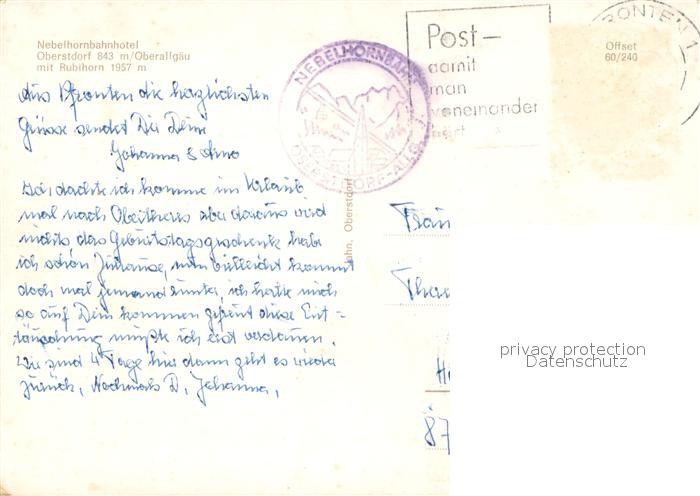 Nebelhornbahnhotel
Oberstdorf 843 m/Oberallgäu
mit Rubihorn 1957 m
Aus Pfronten die herzlichsten
Grüsse sendet Dir Deine
Johanna & Arno
Ich dachte ich komme im Urlaub
mal nach aber daraus wird
nichts das Geburtstagsgeschenk habe
ich schon Zuhause, nun vielleicht kommt
doch mal jemand runter, ich hatte mich
so auf Dein kommen gefreut diese Ent=
täuschung mußte ich erst verdauen.
Wir sind 4 Tage hier dann geht es wieder
zurück, Nochmals D. Johanna,
NEBELHORNBAHN
OBERSTDORF-ALLG.
Post-
damit
man
voneinander
hört
PFRONTEN 1
Offset
60/240
Jahn, Oberstdorf
Frau
87
privacy protection
Datenschutz